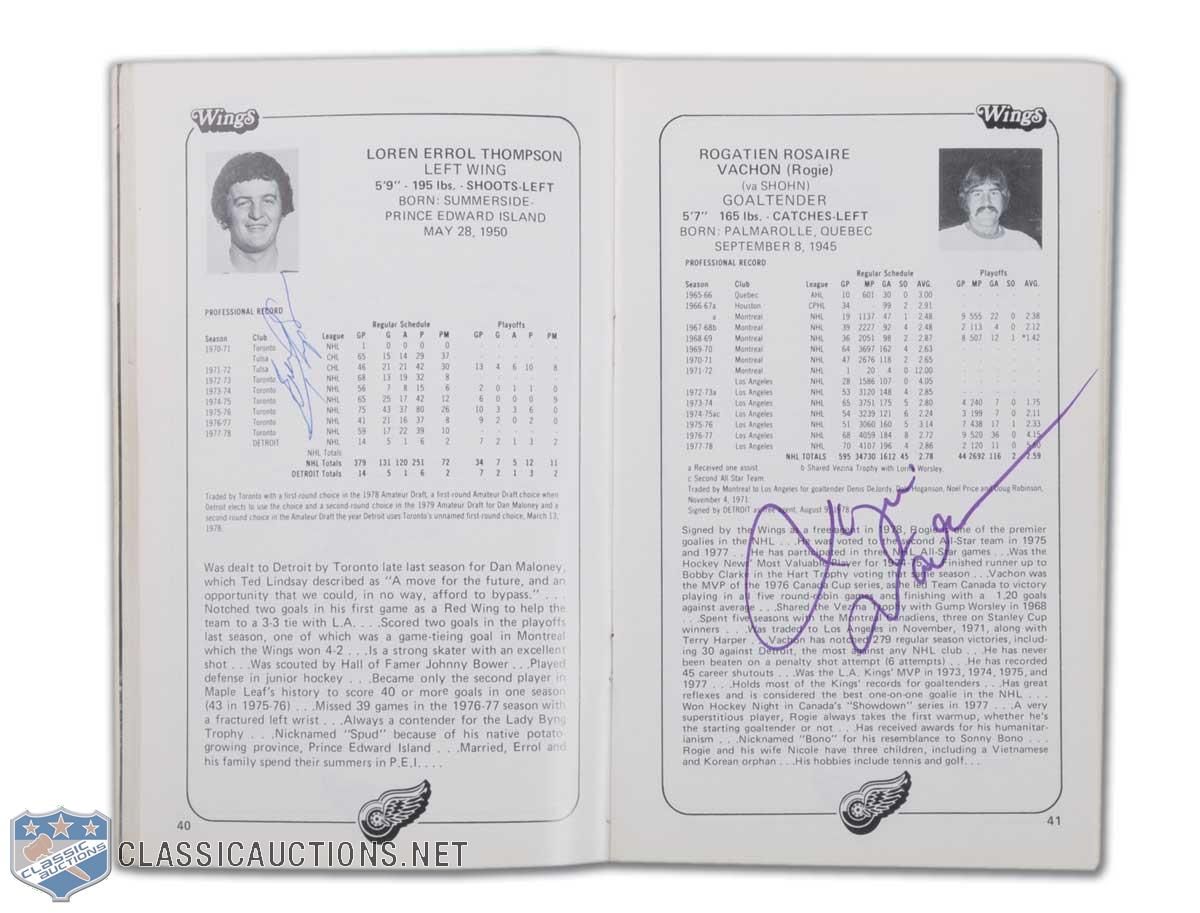 Wings
LOREN ERROL THOMPSON
LEFT WING
5'9" - 195 lbs. - SHOOTS-LEFT
BORN: SUMMERSIDE-
PRINCE EDWARD ISLAND
MAY 28, 1950
PROFESSIONAL RECORD
Regular Schedule Playoffs
Season Club League GP G A P PM GP G A P PM
1970-71 Toronto NHL 1 0 0 0 0 - - - - -
Tulsa CHL 65 15 14 29 37 - - - - -
1971-72 Tulsa CHL 46 21 21 42 30 13 4 6 10 8
1972-73 Toronto NHL 68 13 19 32 8 - - - - -
1973-74 Toronto NHL 56 7 8 15 6 2 0 1 1 0
1974-75 Toronto NHL 65 25 17 42 12 6 0 0 0 9
1975-76 Toronto NHL 75 43 37 80 26 10 3 3 6 0
1976-77 Toronto NHL 41 21 16 37 8 9 2 0 2 0
1977-78 Toronto NHL 59 17 22 39 10 - - - - -
DETROIT NHL 14 5 1 6 2 7 2 1 3 2
NHL Totals
NHL Totals 379 131 120 251 72 34 7 5 12 11
DETROIT Totals 14 5 1 6 2 7 2 1 3 2
Traded by Toronto with a first-round choice in the 1978 Amateur Draft, a first-round Amateur Draft choice when
Detroit elects to use the choice and a second-round choice in the 1979 Amateur Draft for Dan Maloney and a
second-round choice in the Amateur Draft the year Detroit uses Toronto's unnamed first-round choice, March 13,
1978.
Was dealt to Detroit by Toronto late last season for Dan Maloney,
which Ted Lindsay described as "A move for the future, and an
opportunity that we could, in no way, afford to bypass." . . .
Notched two goals in his first game as a Red Wing to help the
team to a 3-3 tie with L.A. . . .Scored two goals in the playoffs
last season, one of which was a game-tieing goal in Montreal
which the Wings won 4-2 . . .Is a strong skater with an excellent
shot . . .Was scouted by Hall of Famer Johnny Bower . . .Played
defense in junior hockey . . .Became only the second player in
Maple Leaf's history to score 40 or more goals in one season
(43 in 1975-76) . . .Missed 39 games in the 1976-77 season with
a fractured left wrist . . .Always a contender for the Lady Byng
Trophy . . .Nicknamed "Spud" because of his native potato-
growing province, Prince Edward Island . . .Married, Errol and
his family spend their summers in P.E.I. . . .
40
Wings
ROGATIEN ROSAIRE
VACHON (Rogie)
(va SHOHN)
GOALTENDER
5'7" 165 lbs. - CATCHES-LEFT
BORN: PALMAROLLE, QUEBEC
SEPTEMBER 8, 1945
PROFESSIONAL RECORD
Regular Schedule Playoffs
Season Club League GP MP GA SO AVG. GP MP GA SO AVG.
1965-66 Quebec AHL 10 601 30 0 3.00
1966-67a Houston CPHL 34 - 99 2 2.91
a Montreal NHL 19 1137 47 1 2.48 9 555 22 0 2.38
1967-68b Montreal NHL 39 2227 92 4 2.48 2 113 4 0 2.12
1968-69 Montreal NHL 36 2051 98 2 2.87 8 507 12 1 *1.42
1969-70 Montreal NHL 64 3697 162 4 2.63
1970-71 Montreal NHL 47 2676 118 2 2.65
1971-72 Montreal NHL 1 20 4 0 12.00
Los Angeles NHL 28 1586 107 0 4.05
1972-73a Los Angeles NHL 53 3120 148 4 2.85
1973-74 Los Angeles NHL 65 3751 175 5 2.80 4 240 7 0 1.75
1974-75ac Los Angeles NHL 54 3239 121 6 2.24 3 199 7 0 2.11
1975-76 Los Angeles NHL 51 3060 160 5 3.14 7 438 17 1 2.33
1976-77 Los Angeles NHL 68 4059 184 8 2.72 9 520 36 0 4.15
1977-78 Los Angeles NHL 70 4107 196 4 2.86 2 120 11 0
NHL TOTALS 595 34730 1612 45 2.78 44 2692 116 2 2.59
a Received one assist. b Shared Vezina Trophy with Lorne Worsley.
c Second All Star Team.
Traded by Montreal to Los Angeles for goaltender Denis DeJordy, Dale Hoganson, Noel Price and Doug Robinson,
November 4, 1971.
Signed by DETROIT as free agent, August 9, 1978
Signed by the Wings as a free agent in 1978, Rogie is one of the premier
goalies in the NHL . . .He was voted to the second All-Star team in 1975
and 1977 . . .He has participated in three NHL All-Star games . . .Was the
Hockey News' Most Valuable Player for 1974-75 . . .Finished runner up to
Bobby Clarke in the Hart Trophy voting that same season . . .Vachon was
the MVP of the 1976 Canada Cup series, as he led Team Canada to victory
playing in all five round-robin games and finishing with a 1.20 goals
against average . . .Shared the Vezina Trophy with Gump Worsley in 1968
. . .Spent five seasons with the Montreal Canadiens, three on Stanley Cup
winners . . .Was traded to Los Angeles in November, 1971, along with
Terry Harper . . .Vachon has notched 279 regular season victories, includ-
ing 30 against Detroit, the most against any NHL club . . .He has never
been beaten on a penalty shot attempt (6 attempts) . . .He has recorded
45 career shutouts . . .Was the L.A. Kings' MVP in 1973, 1974, 1975, and
1977 . . .Holds most of the Kings' records for goaltenders . . .Has great
reflexes and is considered the best one-on-one goalie in the NHL . . .
Won Hockey Night in Canada's "Showdown" series in 1977 . . .A very
superstitious player, Rogie always takes the first warmup, whether he's
the starting goaltender or not . . .Has received awards for his humanitar-
ianism . . .Nicknamed "Bono" for his resemblance to Sonny Bono . . .
Rogie and his wife Nicole have three children, including a Vietnamese
and Korean orphan . . .His hobbies include tennis and golf. . .
41
CLASSIC AUCTIONS
CLASSICAUCTIONS.NET